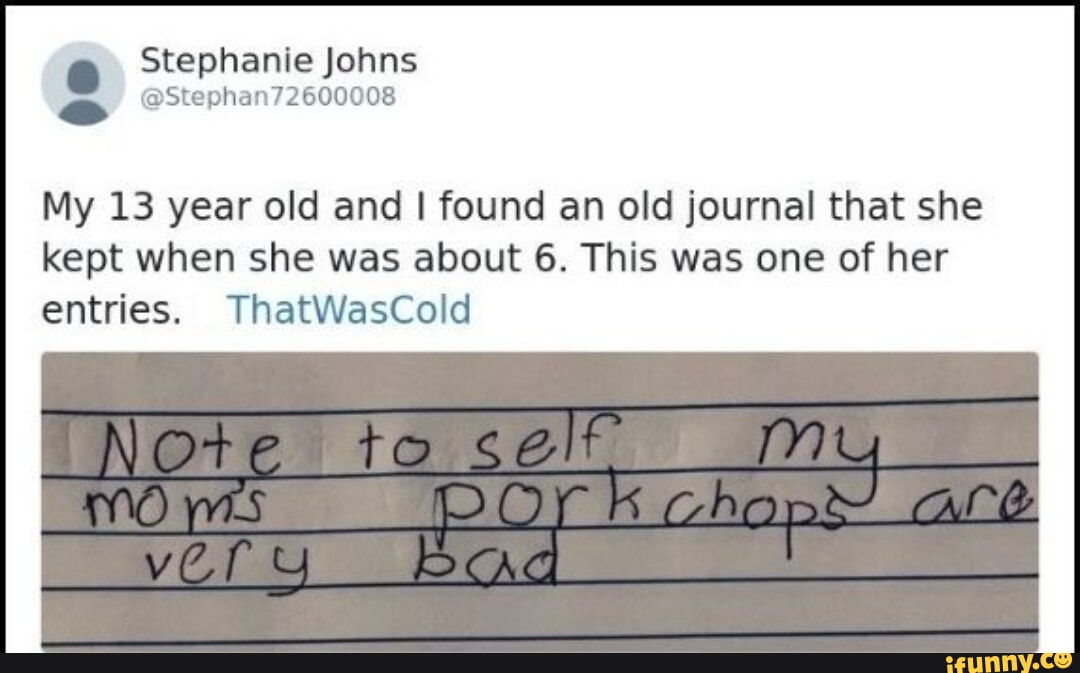 Stephanie Johns
@Stephan72600008
My 13 year old and I found an old journal that she
kept when she was about 6. This was one of her
entries. ThatWasCold
Note to self my
mom's porkchops are
very bad
ifunny.co